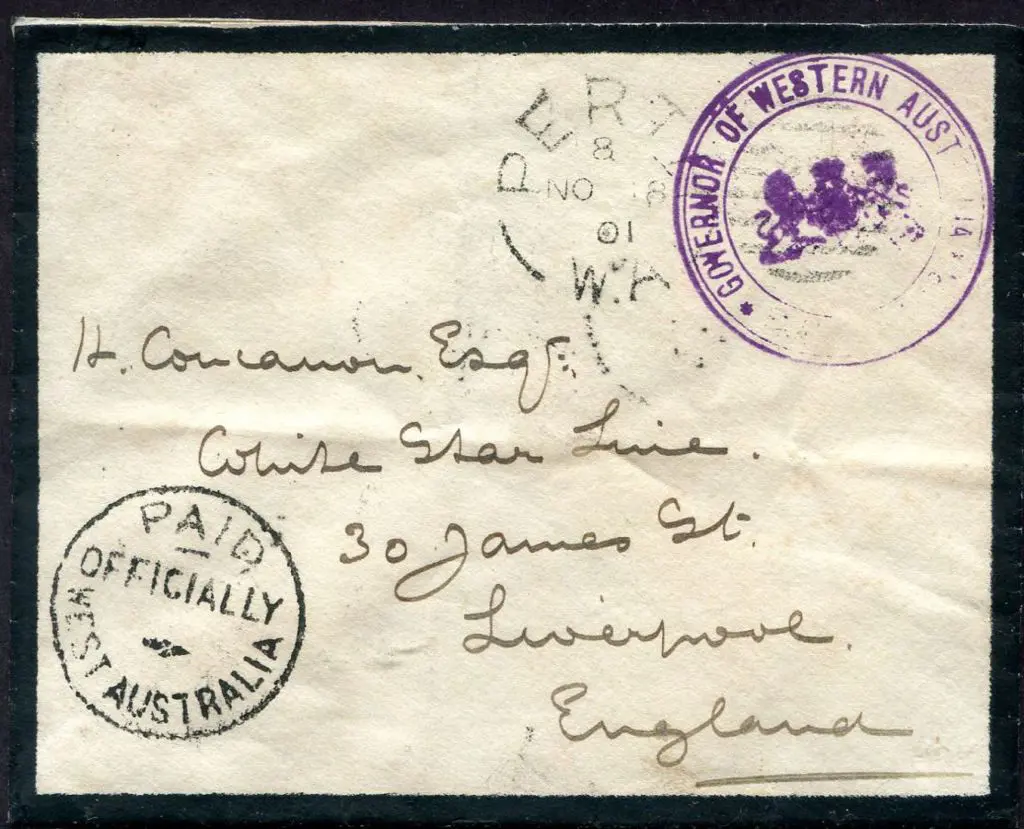 PERT
8
NO 18
01
W.A
* GOVERNOR OF WESTERN AUST
H. Concanon. Esqr.
White Star Line.
30 James St.
Liverpool.
England
PAID
OFFICIALLY
WEST AUSTRALIA